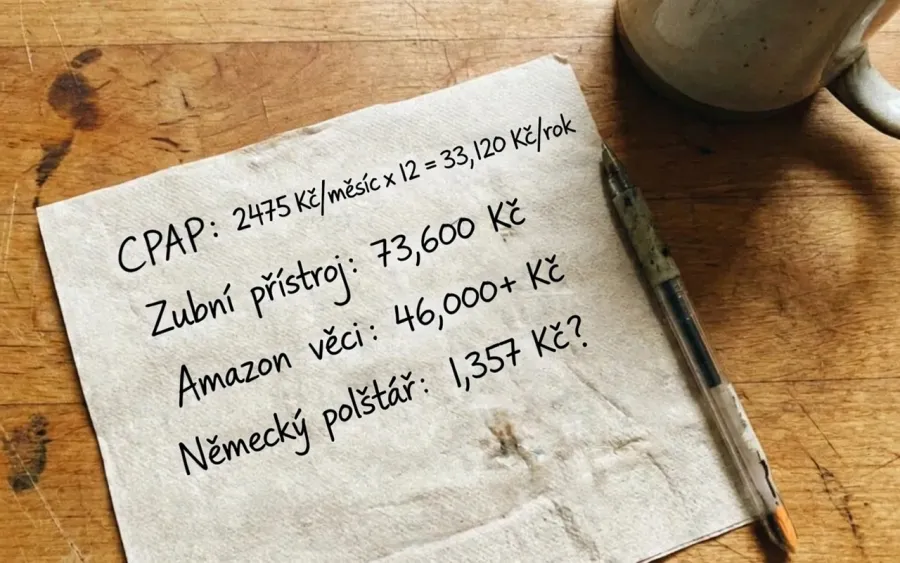 CPAP: 2475 Kč/měsíc x 12 = 33,120 Kč/rok
Zubní přístroj: 73,600 Kč
Amazon věci: 46,000+ Kč
Německý polštář: 1,357 Kč?